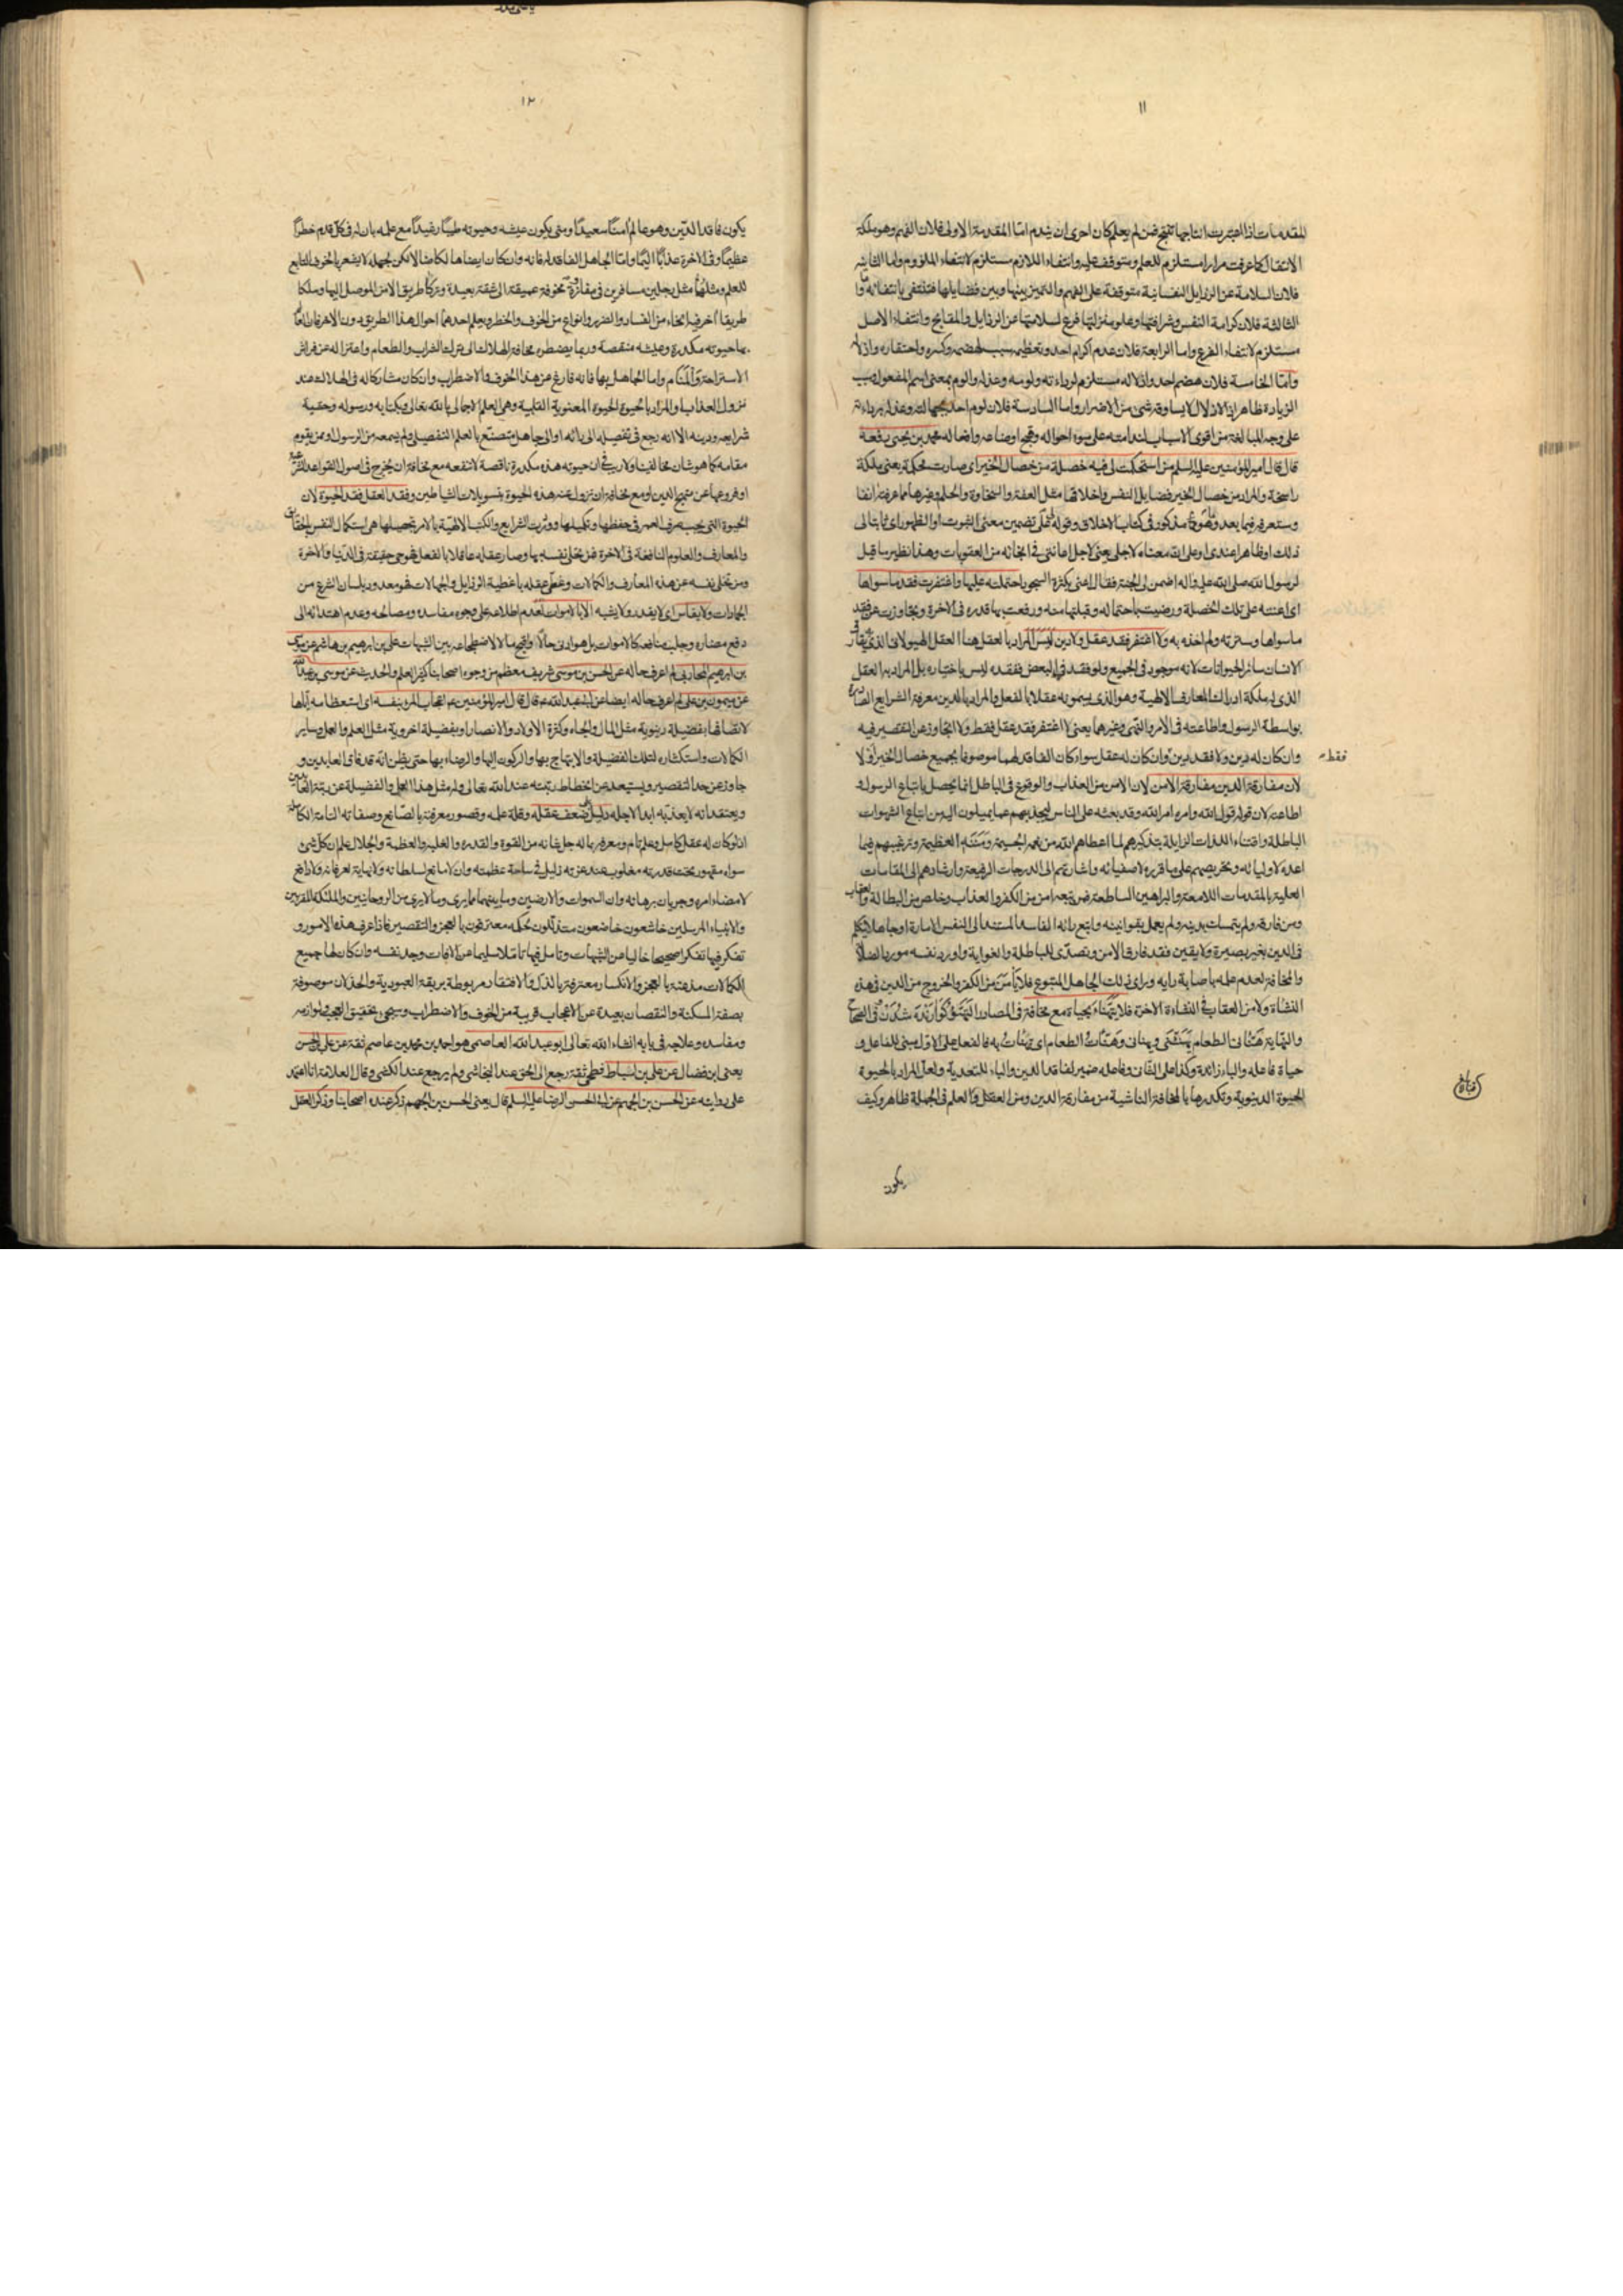 ١١
المقدمات اذا اعتبرت انتاجها تنتج فمن لم يعلم كان احرى ان يندم اما المقدمة الاولى فلان الفهم وهو ملكة
الانتقال كما عرفت مرارا مستلزم للعلم ومتوقف عليه وانتفاء اللازم مستلزم لانتفاء الملزوم واما الثانية
فلان السلامة عن الرذايل النفسانية متوقفة على الفهم والتميز بينها وبين فضايلها فتنتفى بانتفائه واما
الثالثة فلان كرامة النفس وشرافتها وعلو منزلتها فرع لسلامتها عن الرذايل والمقابح وانتفاء الاصل
مستلزم لانتفاء الفرع واما الرابعة فلان عدم اكرام احد وتعظيمه سبب لهضمه وكسره واحتقاره واذلاله
واما الخامسة فلان هضم احد واذلاله مستلزم لرداءته ولومه وعذله والوم بمعنى اسم المفعول
الزيادة ظاهر اذ الاذلال لايساوقه شئ من الاضرار واما السادسة فلان لوم احد بجهالته وعذله برداءته
على وجه المبالغة من اقوى الاسباب لندامته على سوء احواله وقبح اوضاعه وافعاله محمد بن يحيى رفعه
قال قال امير المؤمنين عليه السلم من استحكمت لى فيه خصلة من خصال الخير اى صارت محكمة يعنى ملكة
راسخة والمراد من خصال الخير فضايل النفس واخلاقها مثل العفة والسخاوة والحلم وغيرها مما عرفته انفا
وستعرفه فيما بعد وهو مذكور فى كتاب الاخلاق وقوله لى على تضمين معنى الثبوت او الظهور اى ثابتا لى
ذلك او ظاهرا عندى او على انه معناه لاجلى يعنى لاجل اعانتى فى انجائه من العقوبات وهذا نظير ما قيل
لرسول الله صلى الله عليه واله اضمن لى الجنة فقال اعنى بكثرة السجود احتملته عليها واغتفرت فقد ما سواها
اى اعنته على تلك الخصلة ورضيت باحتماله وقبلتها منه ورفعت بها قدره فى الاخرة وتجاوزت عن فقد
ما سواها وسترته ولم اخذه به ولا اغتفر فقد عقل ولا دين ليس المراد بالعقل هنا العقل الهيولانى الذى يفارق
الانسان سائر الحيوانات لانه موجود فى الجميع ولو فقد فى البعض ففقده ليس باختياره بل المراد به العقل
الذى له ملكة ادراك المعارف الالهية وهو الذى يسمونه عقلا بالفعل والمراد بالدين معرفة الشرايع الصادرة
بواسطة الرسول واطاعته فى الامر والنهى وغيرهما يعنى لا اغتفر فقد عقل فقط ولا اتجاوز عن التقصير فيه
وان كان له دين ولا فقد دين وان كان له عقل سواء كان الفاقد لهما موصوفا بجميع خصال الخير او لا
فقط
لان مفارقة الدين مفارقة الامن لان الامن من العذاب والوقوع فى الباطل انما يحصل باتباع الرسول و
اطاعته لان قوله قول الله وامره امر الله وقد بعثه على الناس ليجذبهم عما يميلون اليه من اتباع الشهوات
الباطلة واقتناء اللذات الزايلة بتذكيرهم لما اعطاهم الله من نعمه الجسيمة ومننه العظيمة وترغيبهم فيما
اعده لاوليائه وتحريصهم على ما قرره لاصفيائه واشارتهم الى الدرجات الرفيعة وارشادهم الى المقامات
العلية بالمقدمات اللامعة والبراهين الساطعة فمن تبعه امن من الكفر والعذاب وخلص من البطالة والعقاب
ومن فارقه ولم يتمسك بدينه ولم يعمل بقوانينه واتبع رائه الفاسد المستند الى النفس الامارة او جاهلا يتكلم
فى الدين بغير بصيرة ولا يقين فقد فارق الامن وتصدى للباطلة والغواية واورد نفسه مورد الضلالة
والمخافة لعدم علمه باصابة رايه وراى ذلك الجاهل المتبوع فلا يأمن من الكفر والخروج من الدين فى هذه
النشاة ولا من العقاب فى النشاءة الاخرة فلا يتهناء بحياة مع مخافة فى المصادر التهنؤ كوارنده شدن فى الصحاح
والنهاية هنانى الطعام يهنؤنى ويهنانى وهنئت الطعام اى تهنات به فالفعل على الاول مبنى للفاعل و
حياة فاعله والباء زائدة وكذا على الثانى وفاعله ضمير لفاقد الدين والباء للتعدية ولعل المراد بالحيوة
الحيوة الدنيوية وتكدرها بالمخافة الناشية من مفارقة الدين ومن العقل والعلم فى الجملة ظاهر وكيف
يكون
١٢
يكون فاقد الدين وهو عالم امنا سعيدا ومتى يكون عيشه وحيوته طيبا رغيدا مع علمه بان له فى كل قدم خطرا
عظيما وفى الاخرة عذابا اليما واما الجاهل الفاقد له فانه وان كان ايضا هالكا ضالا لكن لجهله لا يشعر بالخوف التابع
للعلم ومثلهما مثل رجلين مسافرين فى مفازة مخوفة عميقة الى شقة بعيدة وتركا طريق الامن الموصل اليها وسلكا
طريقا اخر فيه انحاء من الفساد والضرر وانواع من الخوف والخطر ويعلم احدهما احوال هذا الطريق دون الاخر فان العالم
بها حيوته مكدرة وعيشه منقصة وربما يضطره مخافة الهلاك الى ترك الشراب والطعام واعتزاله عن فراش
الاستراحة والمنام واما الجاهل بها فانه فارغ من هذا الخوف والاضطراب وان كان مشاركا له فى الهلاك عند
نزول العذاب والمراد بالحيوة الحيوة المعنوية القلبية وهى العلم الاجمالى بالله تعالى وبكتابه ورسوله وحقية
شرايعه ودينه الا انه رجع فى تفصيله الى رائه او الى جاهل متصنع بالعلم التفصيلى ولم يسمعه من الرسول او ممن يقوم
مقامه كما هو شان مخالفينا ولا ريب فى ان حيوته هذه مكدرة ناقصة لا تنفعه مع مخافة ان يخرج فى اصول القواعد الشرعية
او فروعها عن منهج الدين او مع مخافة ان تزول عنه هذه الحيوة بتسويلات الشياطين وفقد العقل فقد الحيوة لان
الحيوة التى يجب صرف العمر فى حفظها وتكميلها وورد الشرايع والكتب الالهية بالامر بتحصيلها هى استكمال النفس بالحقائق
والمعارف والعلوم النافعة فى الاخرة فمن تحلى نفسه بها وصار عقله عاقلا بالفعل فهو حى حقيقة فى الدنيا والاخرة
ومن تخلى نفسه عن هذه المعارف والكمالات وغطى عقله باغطية الرذايل والجهالات فهو معدود بلسان الشرع من
الجمادات ولا يقاس اى لا يقدر ولا يشبه الا بالاموات لعدم اطلاعه على وجوه مفاسده ومصالحه وعدم اهتدائه الى
دفع مضاره وجلب منافعه كالاموات بل هو ادنى حالا واقبح مالا لاضطجاعه بين الشبهات على بن ابرهيم بن هاشم عن موسى
بن ابرهيم المحاربى لم اعرف حاله عن الحسن بن موسى شريف معظم من وجوه اصحابنا كثير العلم والحديث عن موسى بن عبدالله
عن ميمون بن على لم اعرف حاله ايضا عن ابى عبد الله ع قال قال امير المؤمنين ع اعجاب المرء بنفسه اى استعظامه اياها
لاتصافها بفضيلة دنيوية مثل المال والجاه وكثرة الاولاد والانصار او بفضيلة اخروية مثل العلم والعمل وساير
الكمالات واستكثاره لتلك الفضيلة والابتهاج بها والركون اليها والرضاء بها حتى يظن انه قد فاق العابدين و
جاوز عن حد التقصير ويستبعد عن انحطاط رتبته عند الله تعالى وله مثل هذا العمل والفضيلة عن رتبة العابدين
ويعتقد انه لا يعذبه ابدا لاجله دليل على ضعف عقله وقلة علمه وقصور معرفته بالصانع وصفاته التامة الكاملة
اذ لو كان له عقل كامل وعلم تام ومعرفة بما له جل شانه من القوة والقدرة والغلبة والعظمة والجلال علم ان كل شئ
سواه مقهور تحت قدرته مغلوب عند عزته ذليل فى ساحة عظمته وان لا مانع لسلطانه ولا نهاية لعرفانه ولا دافع
لامضاء امره وجريان برهانه وان السموات والارضين وما بينهما مما يرى وما لا يرى من الروحانيين والملئكة المقربين
والانبياء المرسلين خاشعون خاضعون متذللون لحكمه معترفون بالعجز والتقصير فاذا عرف هذه الامور و
تفكر فيها تفكرا صحيحا خاليا من الشبهات وتامل فيها تاملا سليما عن الافات وجد نفسه وان كان لها جميع
الكمالات مذعنة بالعجز والانكسار معترفة بالذل والافتقار مربوطة بربقة العبودية والخذلان موصوفة
بصفة المسكنة والنقصان بعيدة عن الاعجاب قريبة من الخوف والاضطراب وسيجئ تحقيق العجب ولوازمه
ومفاسده وعلاجه فى بابه انشاء الله تعالى ابو عبد الله العاصمى هو احمد بن محمد بن عاصم ثقة عن على بن الحسن
يعنى ابن فضال عن على بن اسباط فطحى ثقة رجع الى الحق عند النجاشى ولم يرجع عند الكشى وقال العلامة انا اعتمد
على روايته عن الحسن بن الجهم عن ابى الحسن الرضا عليه السلم قال يعنى الحسن بن الجهم ذكر عنده اصحابنا وذكر العقل